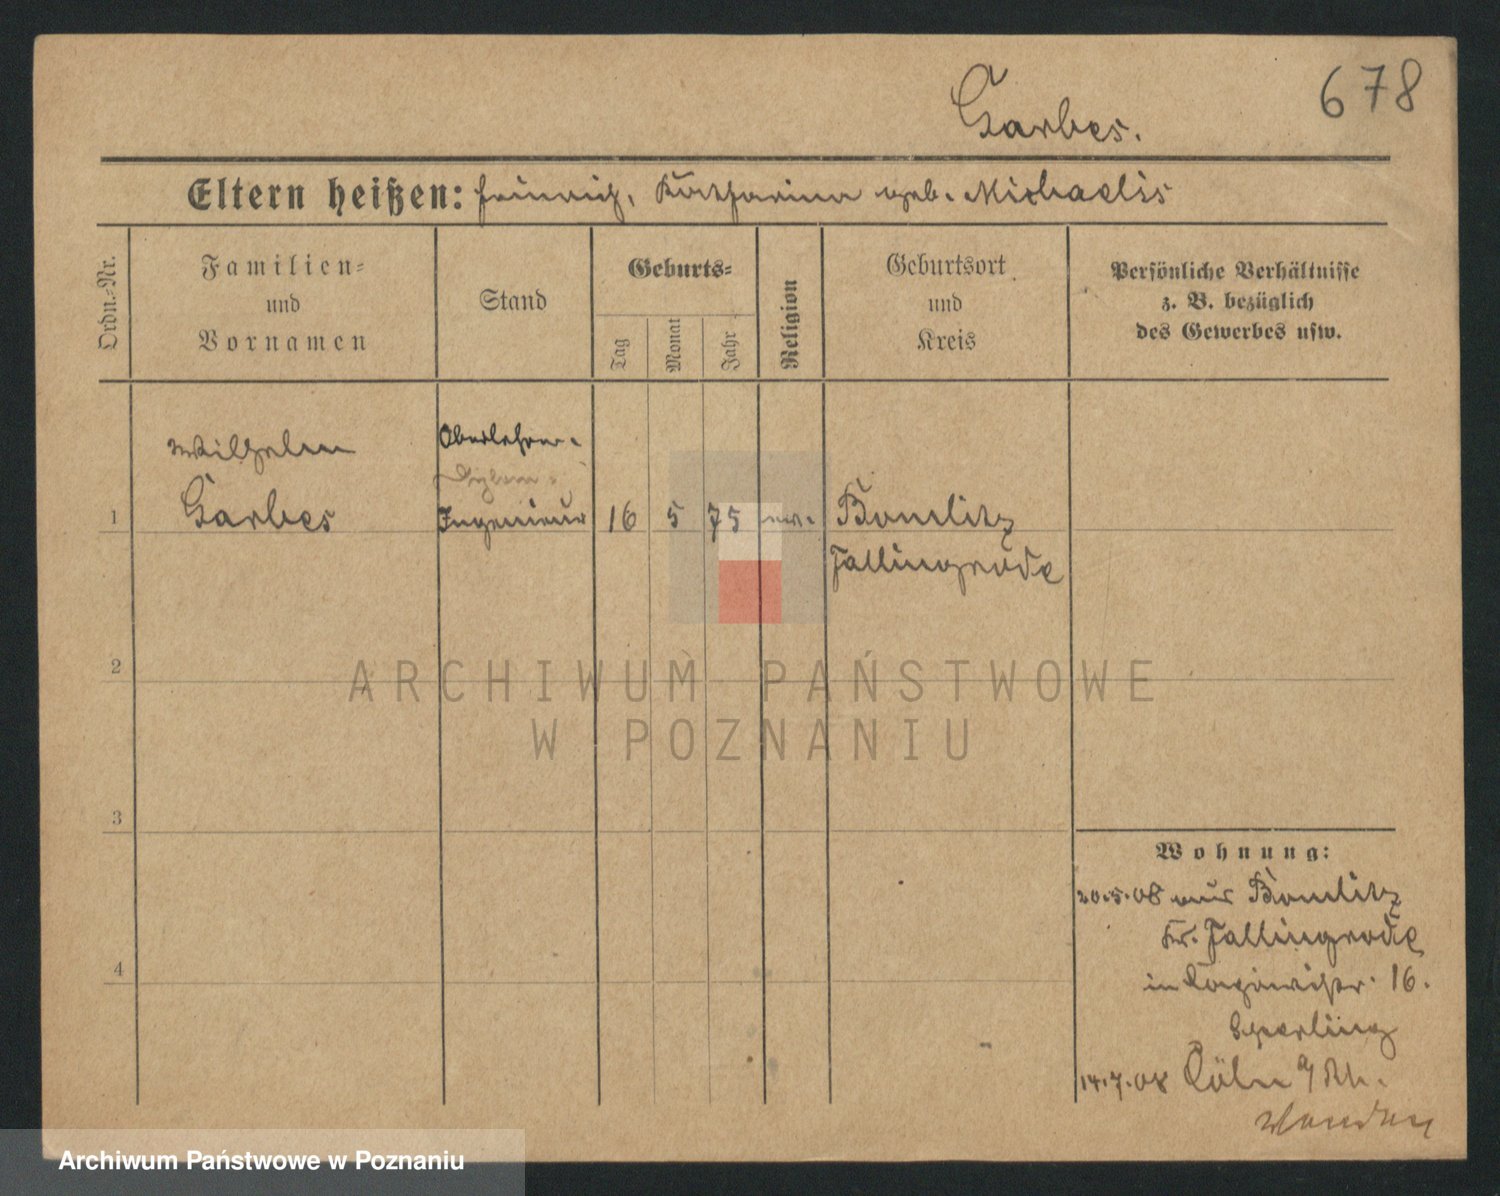 678
Garbes.
Eltern heißen: Heinrich, Katharina geb. Michaelis
Ordn.-Nr.
Familien-
und
Vornamen
Stand
Geburts-
Tag
Monat
Jahr
Religion
Geburtsort
und
Kreis
Persönliche Verhältnisse
z. B. bezüglich
des Gewerbes usw.
1
Wilhelm
Garbes
Oberlehrer-
Diplom-
Ingenieur
16
5
75
ev.
Bomlitz
Fallingrode
2
3
4
ARCHIWUM PAŃSTWOWE
W POZNANIU
Wohnung:
20.5.08 aus Bomlitz
Kr. Fallingrode
in 16.
Sperling
14.7.08 Cöln a/Rh.
Archiwum Państwowe w Poznaniu